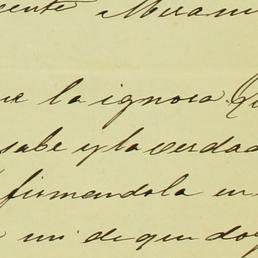 cente Miram
e la ignora. Qu
sabe y la verdad
firmandola en
mi de que doy